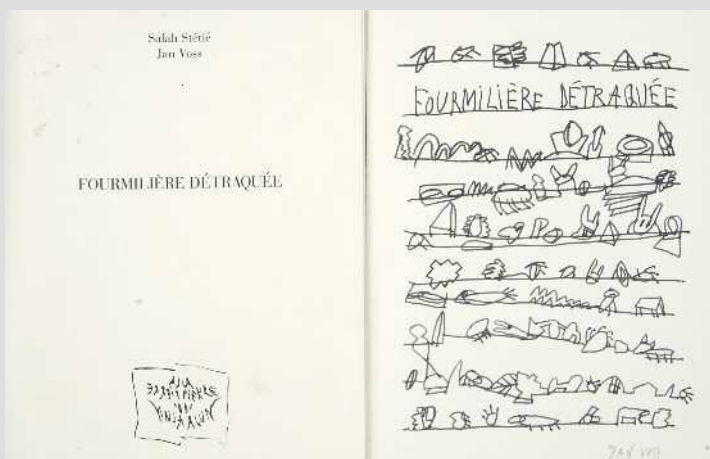 Salah Stétié
Jan Voss
FOURMILIÈRE DÉTRAQUÉE
FOURMILIÈRE DÉTRAQUÉE